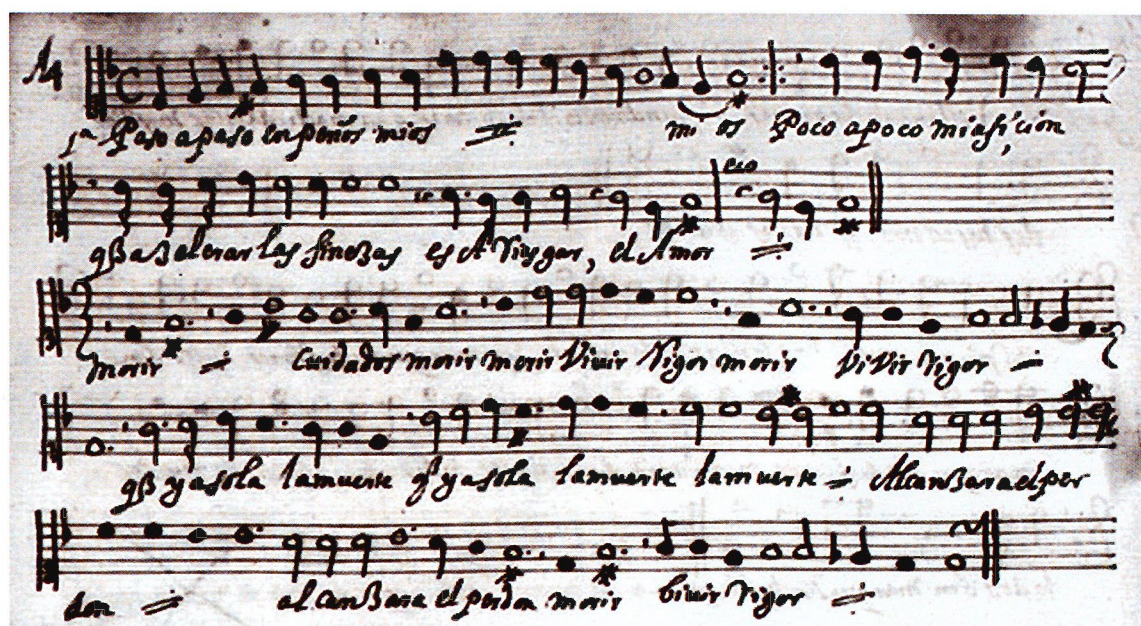 A4
Paso apaso enpeños mios mi os Poco apoco miafición
eco
q aBelerar las fineBas es Arriesgar, el Amor
morir cuidados morir morir Vivir rigor morir ViVir rigor
q yasola lamuerte q yasola lamuerte lamuerte AlcanBara el per
don alcanBara el perdon morir bivir rigor